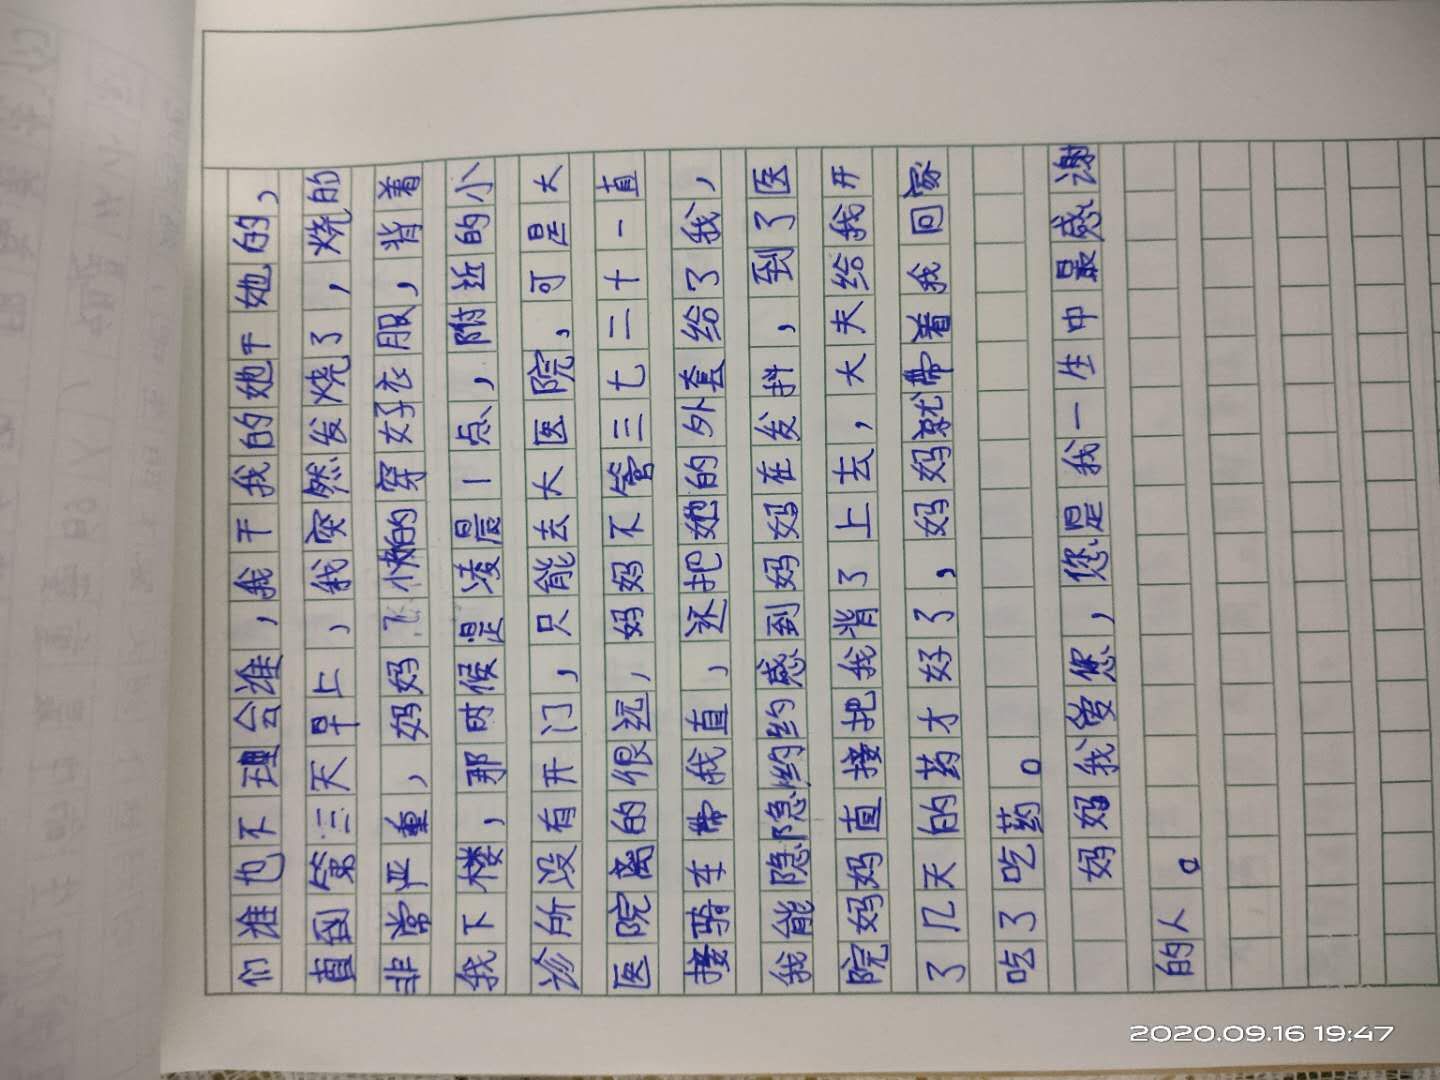 们谁也不理会谁，我干我的她干她的，
直到第三天早上，我突然发烧了，烧的
非常严重，妈妈飞快的穿好衣服，背着
我下楼，那时候是凌晨一点，附近的小
诊所没有开门，只能去大医院，可是大
医院离的很远，妈妈不管三七二十一直
接骑车带我直，还把她的外套给了我，
我能隐隐约约感到妈妈在发抖，到了医
院妈妈直接把我背了上去，大夫给我开
了几天的药才好了，妈妈就带着我回家
吃了吃药。
妈妈我爱您，您是我一生中最感谢
的人。
2020.09.16 19:47